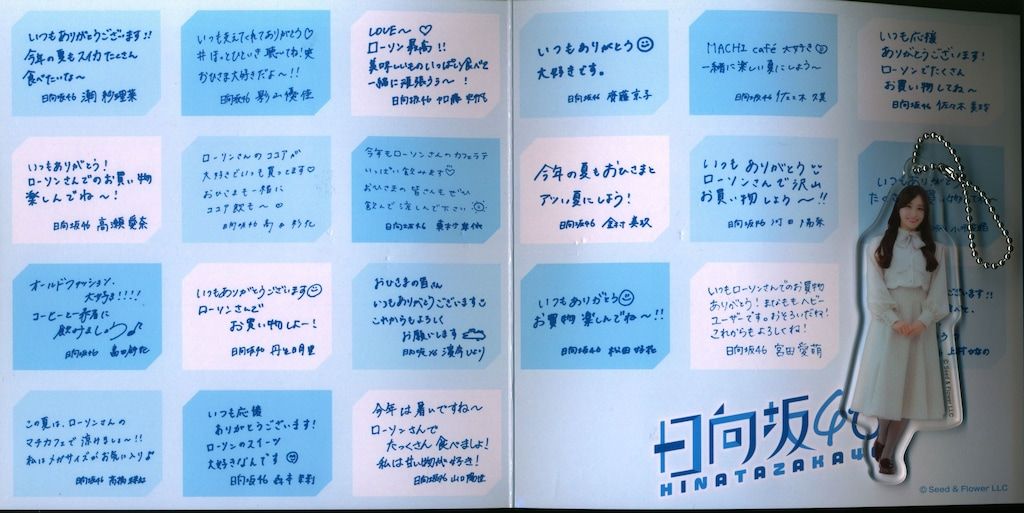 いつもありがとうございます!!
今年の夏もスイカたくさん
食べたいな〜
日向坂46 潮 紗理菜
いつも支えてくれてありがとう♡
#ほっとひといき 聴〜てね!笑
おひさま大好きだよ〜!!
日向坂46 影山優佳
LOVE〜♡
ローソン最高!!
美味しいものいっぱい食べて
一緒に頑張ろう〜!
日向坂46 加藤史帆
いつもありがとう☺
大好きです。
日向坂46 齊藤京子
MACHI café 大好き☺
一緒に楽しい夏にしよう〜
日向坂46 佐々木久美
いつも応援
ありがとうございます!
ローソンでたくさん
お買い物してね〜
日向坂46 佐々木美玲
いつもありがとう!
ローソンさんでのお買い物
楽しんでね〜!
日向坂46 高瀬愛奈
ローソンさんのココアが
大好きでいつも買ってます♡
おひさまも一緒に
ココア飲も〜
日向坂46 高本彩花
今年もローソンさんのカフェラテ
いっぱい飲みます♡
おひさまの皆さんもぜひ
飲んで涼しんで下さい
日向坂46 東村芽依
今年の夏もおひさまと
アツい夏にしよう!
日向坂46 金村美玖
いつも ありがとう
ローソンさんで沢山
お買い物しよう〜!!
日向坂46 河田陽菜
いつもありがとう
オールドファッション、
大好き!!!!
コーヒーと一緒に
飲みましょう♪
日向坂46 富田鈴花
いつもありがとうございます☺
ローソンさんで
お買い物しよー!
日向坂46 丹生明里
おひさまの皆さん
いつもありがとうございます
これからもよろしく
お願いします
日向坂46 濱岸ひより
いつもありがとう☺
お買物 楽しんでね〜!!
日向坂46 松田好花
いつもローソンさんでのお買い物
ありがとう!まなももヘビー
ユーザーです。おそろいだね!
これからもよろしくね!
日向坂46 宮田愛萌
上村ひなの
この夏は、ローソンさんの
マチカフェで 涼みましょ〜!!
私はメガサイズがお気に入り♪
日向坂46 髙橋未来虹
いつも応援
ありがとうございます!
ローソンのスイーツ
大好きなんです☺
日向坂46 森本茉莉
今年は暑いですね〜
ローソンさんで
たっくさん 食べましょ!
私は甘い物が好き!
日向坂46 山口陽世
日向坂46
HINATAZAKA46
© Seed & Flower LLC
© Seed & Flower LLC